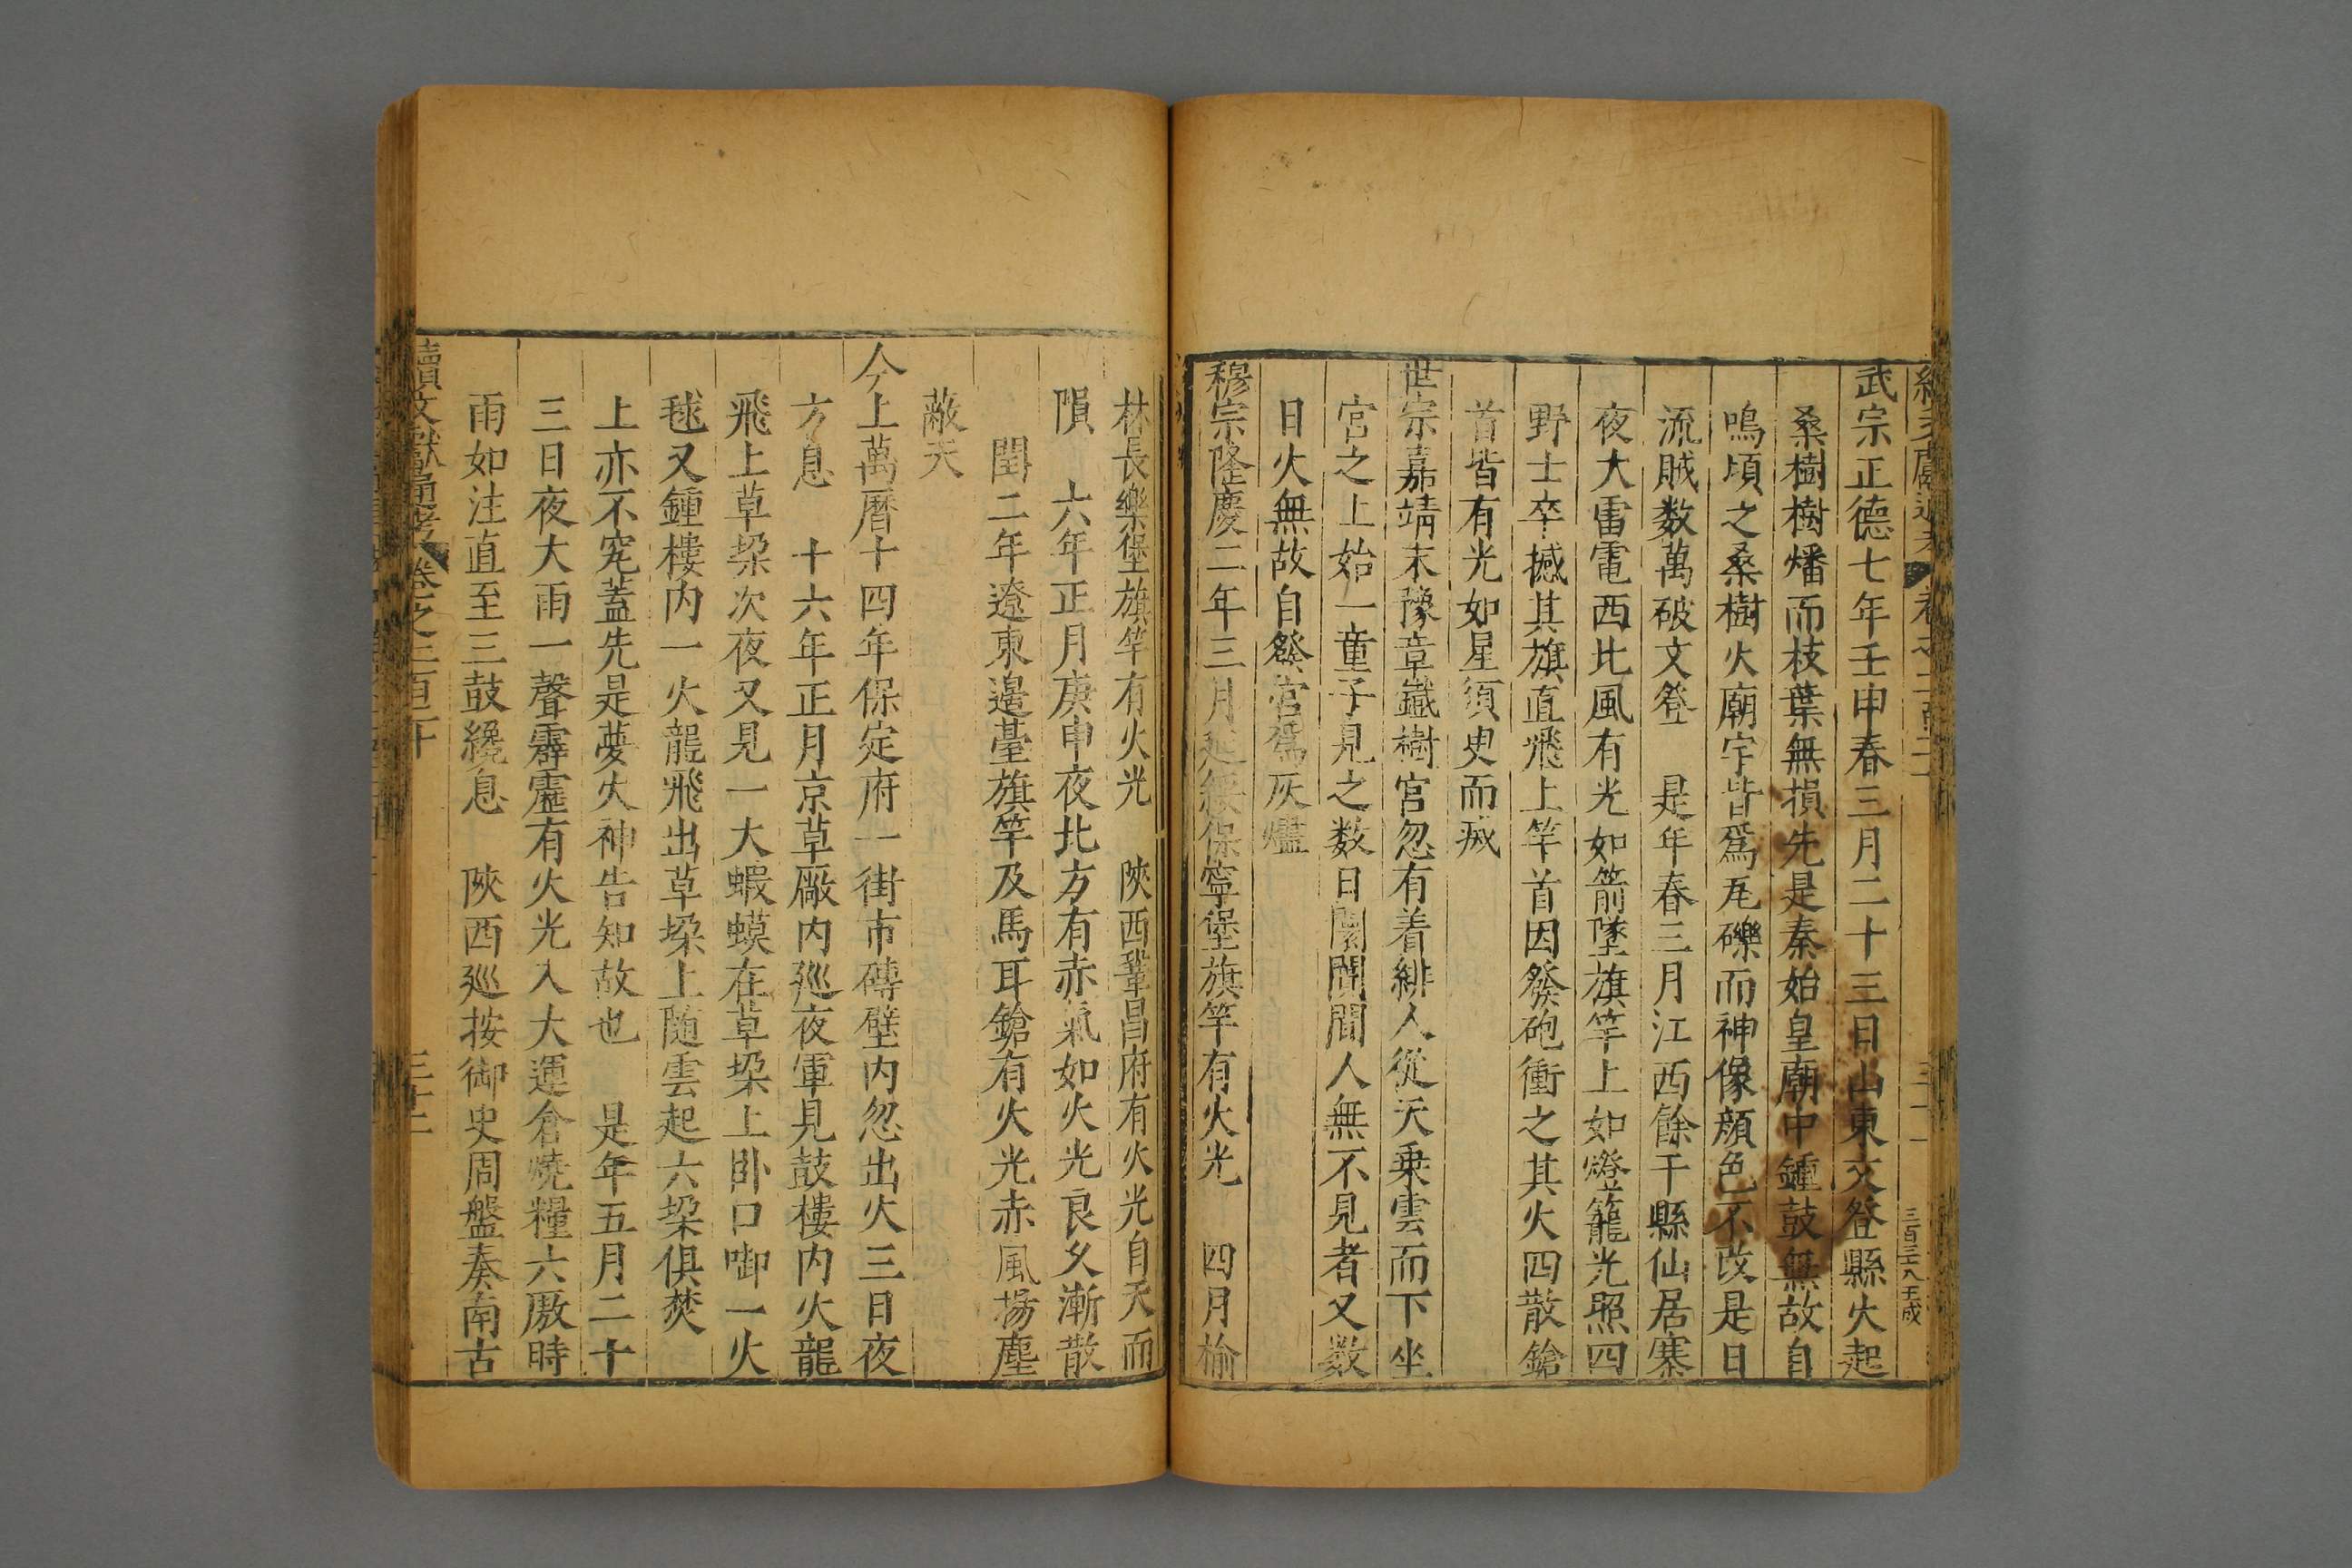 武宗正德七年壬申春三月二十三日山東文登縣火起
桑樹樹燔而枝葉無損先是秦始皇廟中鍾鼓無故自
鳴頃之桑樹火廟宇皆爲瓦礫而神像顔色不改是日
流賊数萬破文登　是年春三月江西餘干縣仙居寨
夜大雷電西北風有光如箭墜旗竿上如燈籠光照四
野士卒撼其旗直飛上竿首因發砲衝之其火四散鎗
首皆有光如星須臾而滅
世宗嘉靖末豫章鐵樹宮忽有着緋人從天乗雲而下坐
宮之上始一童子見之数日闤闠間人無不見者又數
日火無故自發宮爲灰燼
穆宗隆慶二年三月延綏保寧堡旗竿有火光　四月榆
林長樂堡旗竿有火光　陝西鞏昌府有火光自天而
隕　六年正月庚申夜北方有赤氣如火光良久漸散
閏二年遼東邊臺旗竿及馬耳鎗有火光赤風揚塵
蔽天
今上萬曆十四年保定府一街市磚壁内忽出火三日夜
方息　十六年正月京草厰内廵夜軍見鼓樓内火龍
飛上草垜次夜又見一大蝦蟆在草垜上卧口啣一火
毬又鍾樓内一火龍飛出草垜上随雲起六垜俱焚
上亦不究蓋先是夢火神告知故也　是年五月二十
三日夜大雨一聲霹靂有火光入大運倉燒糧六厫時
雨如注直至三鼓纔息　陝西廵按御史周盤奏南古
續文獻通考卷之二百二十